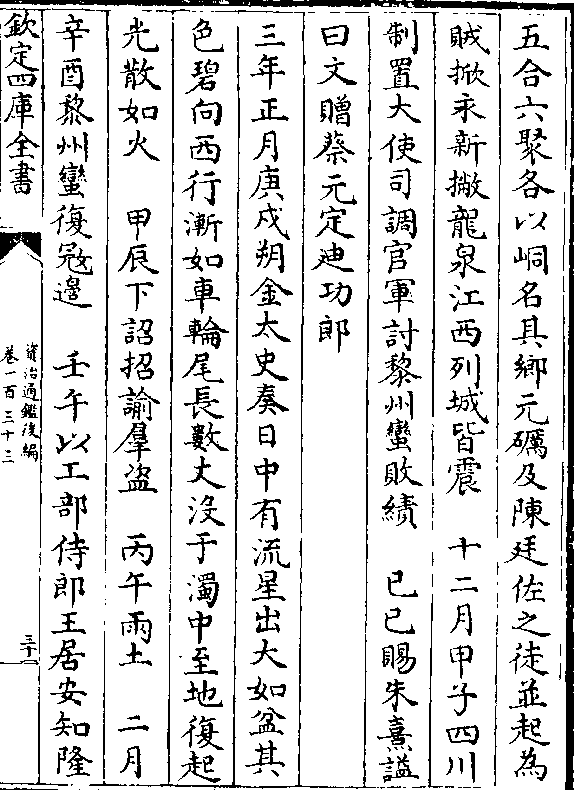 五合六聚各以峒名其鄉元礪及陳廷佐之徒並起為
賊掀永新撇龍泉江西列城皆震　十二月甲子四川
制置大使司調官軍討黎州蠻敗績　己巳賜朱熹謚
曰文贈蔡元定廸功郎
三年正月庚戍朔金太史奏日中有流星出大如盆其
色碧向西行漸如車輪尾長數丈沒于濁中至地復起
光散如火　甲辰下詔招諭羣盜　丙午雨土　二月
辛酉黎州蠻復冦邊　壬午以工部侍郎王居安知隆
欽定四庫全書
資治通鑑後編
卷一百三十三
三十二